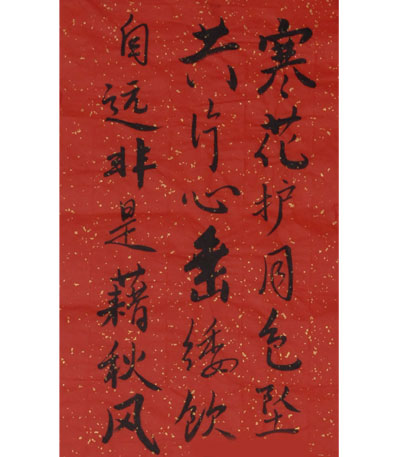 寒花护月色坠
共片心垂緌饮
自远非是藉秋风